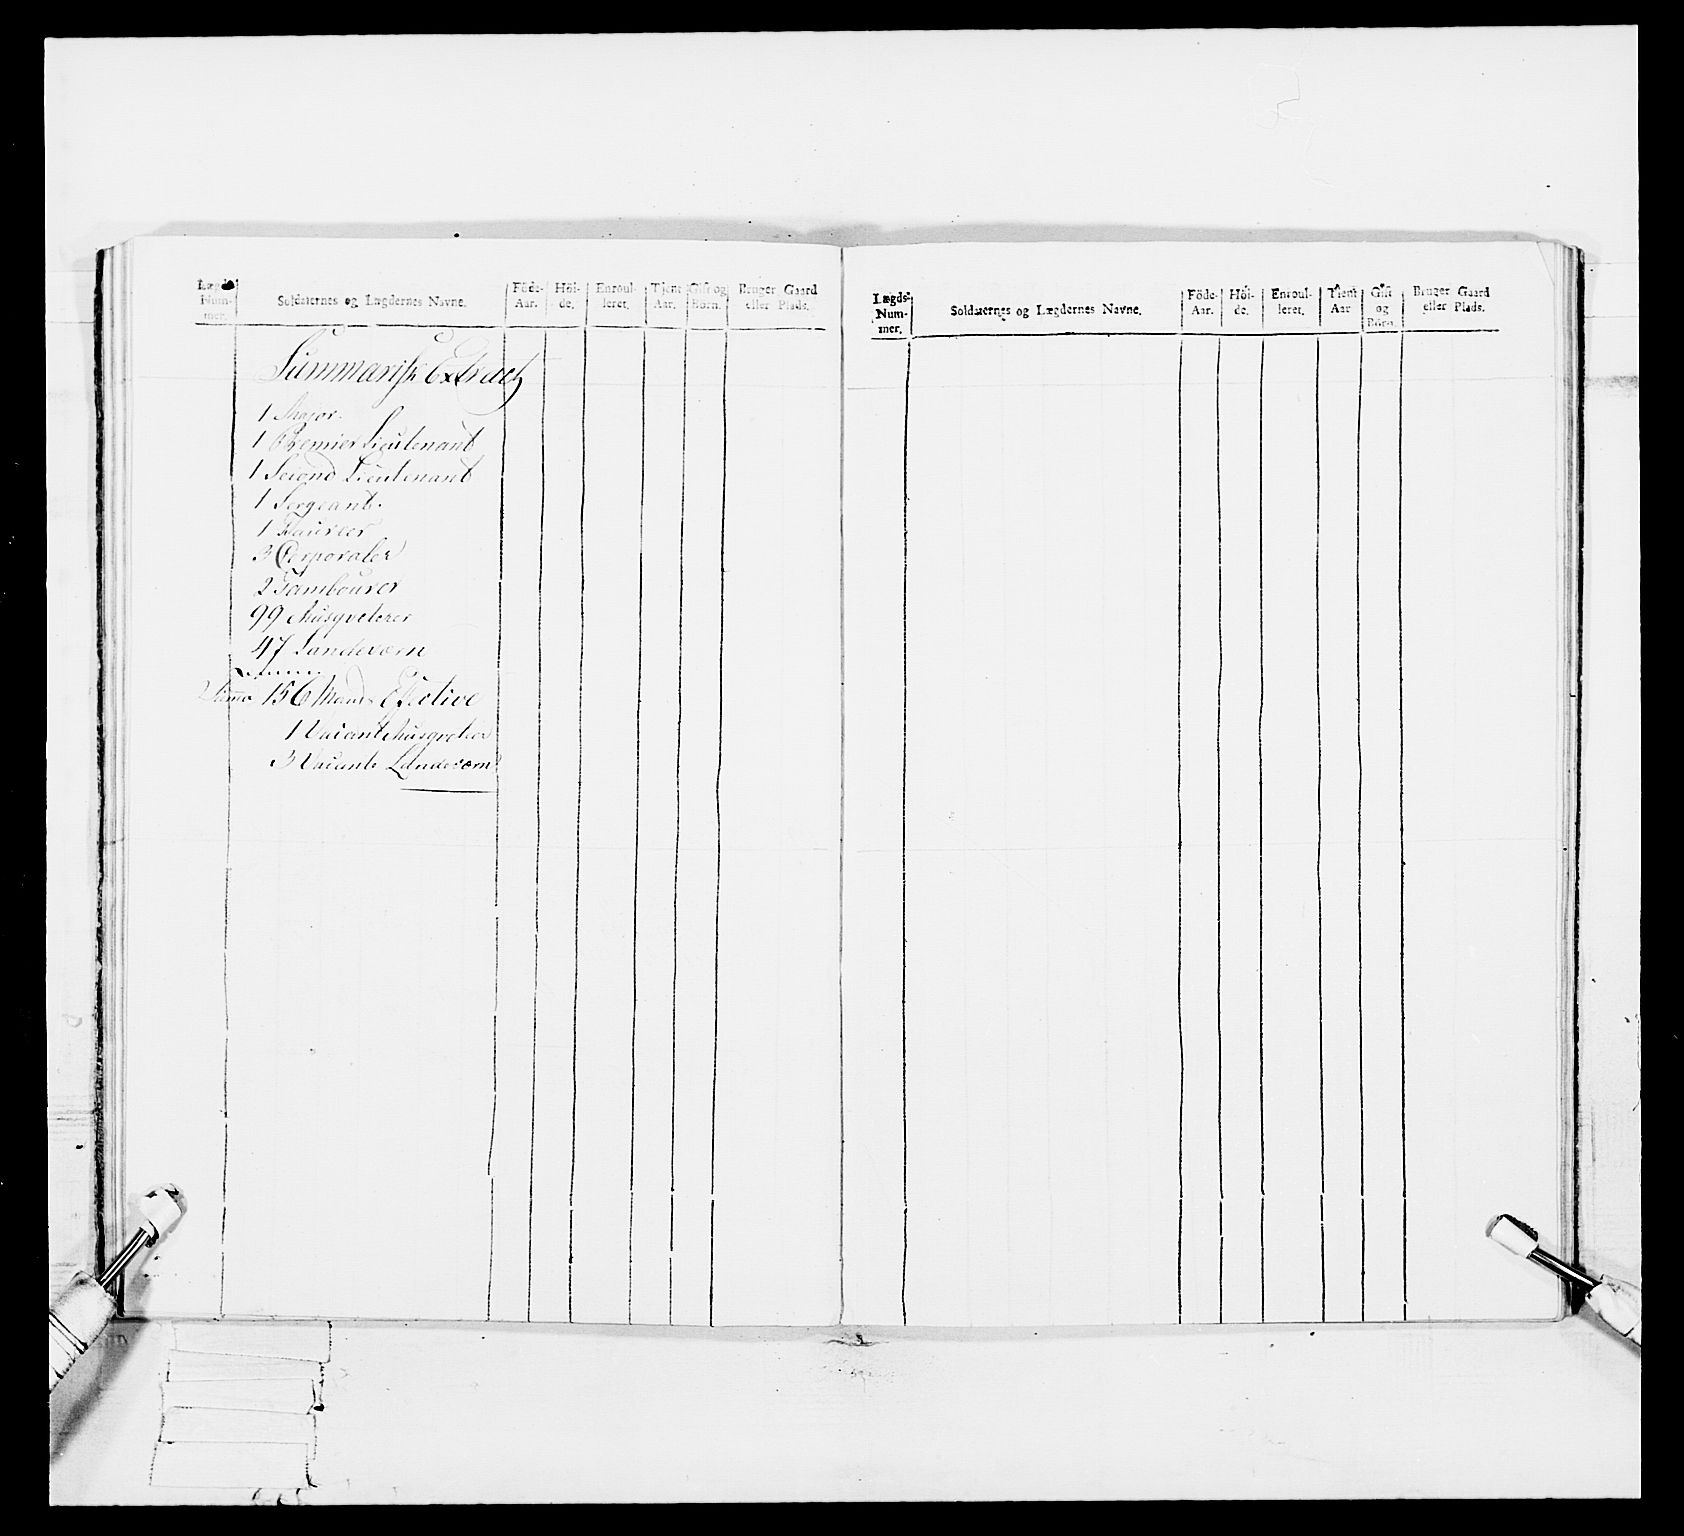 Lægds-
Num-
mer.
Soldaternes og Lægdernes Navne.
Föde-
Aar.
Höi-
de.
Enroul-
leret.
Tjent
Aar.
Gift og
Børn.
Bruger Gaard
eller Plads.
Summarisk Extract
1 Major.
1 Premier Lieutenant
1 Second Lieutenant
1 Sergeant.
1
3 Corporaler
2 Tambourer
99 Musqveterer
47 Landeværn
Summa 156 Mand Efective
1 Vacant Musqveteer
3 Vacante Landeværn
Lægds-
Num-
mer.
Soldaternes og Lægdernes Navne.
Föde-
Aar.
Höi-
de.
Enroul-
leret.
Tjent
Aar
Gift
og
Börn.
Bruger Gaard
eller Plads.